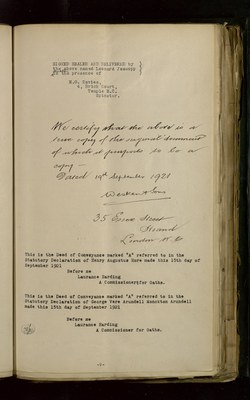 SIGNED SEALED AND DELIVERED by
the above named Leonard
in the presence of
Temple E.C.
Solicitor.
We certify that the above is a
true copy of the original document
of which it purports to be a
copy —
Dated 19th September 1921
35 Essex Street
Strand
London W.C.
This is the Deed of Conveyance marked "A" referred to in the
Statutory Declaration of Henry Augustus Hore made this 15th day of
September 1921
Before me
Laurance Harding
A Commissioner for Oaths.
This is the Deed of Conveyance marked "A" referred to in the
Statutory Declaration of George Vere Arundell Monckton Arundell
made this 15th day of September 1921
Before me
Laurance Harding
A Commissioner for Oaths.